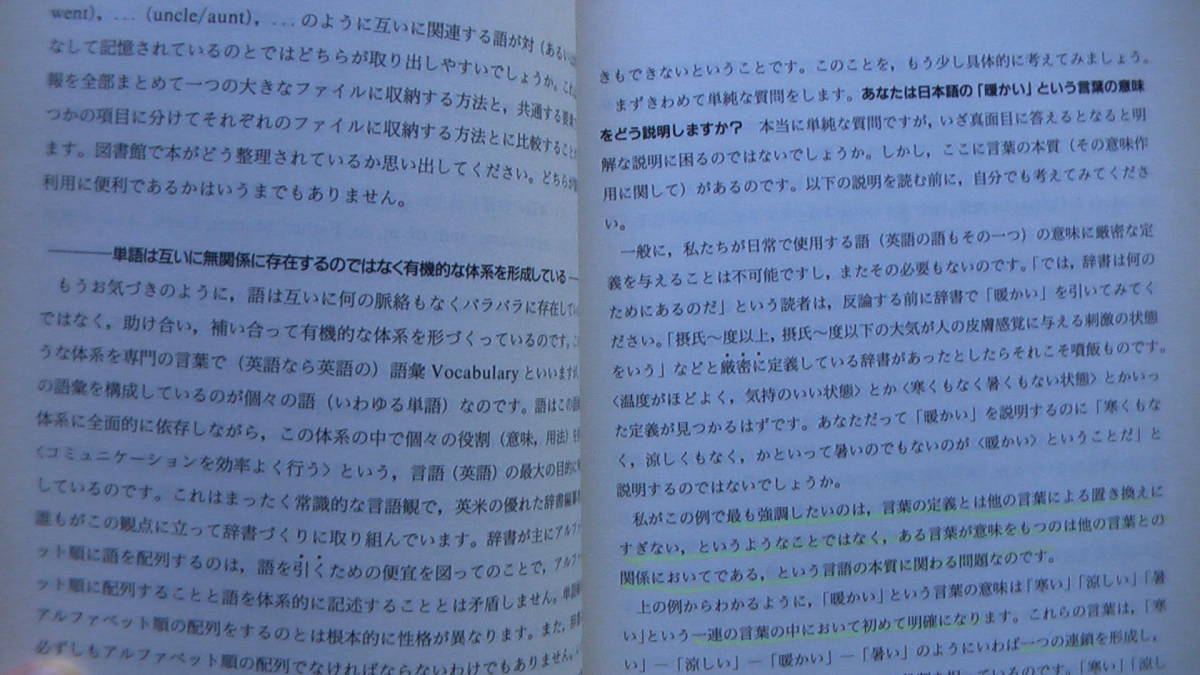 went), … (uncle/aunt), … のように互いに関連する語が対（ある
なして記憶されているのとではどちらが取り出しやすいでしょうか。これ
報を全部まとめて一つの大きなファイルに収納する方法と，共通する要
つかの項目に分けてそれぞれのファイルに収納する方法とに比較すること
ます。図書館で本がどう整理されているか思い出してください。どちらが
利用に便利であるかはいうまでもありません。
単語は互いに無関係に存在するのではなく有機的な体系を形成している
もうお気づきのように，語は互いに何の脈絡もなくバラバラに存在してい
ではなく，助け合い，補い合って有機的な体系を形づくっているのです。
うな体系を専門の言葉で（英語なら英語の）語彙 Vocabulary といいます
の語彙を構成しているのが個々の語（いわゆる単語）なのです。語はこの
体系に全面的に依存しながら，この体系の中で個々の役割（意味，用法）を
〈コミュニケーションを効率よく行う〉という，言語（英語）の最大の目的に
しているのです。これはまったく常識的な言語観で，英米の優れた辞書編
誰もがこの観点に立って辞書づくりに取り組んでいます。辞書が主にアルファ
ット順に語を配列するのは，語を引くための便宜を図ってのことで，アルファ
ット順に配列することと語を体系的に記述することとは矛盾しません。単語
アルファベット順の配列をするのとは根本的に性格が異なります。また，辞
必ずしもアルファベット順の配列でなければならないわけでもありません。
きもできないということです。このことを，もう少し具体的に考えてみましょう。
まずきわめて単純な質問をします。あなたは日本語の「暖かい」という言葉の意味
をどう説明しますか？　本当に単純な質問ですが，いざ真面目に答えるとなると明
解な説明に困るのではないでしょうか。しかし，ここに言葉の本質（その意味作
用に関して）があるのです。以下の説明を読む前に，自分でも考えてみてくださ
い。
一般に，私たちが日常で使用する語（英語の語もその一つ）の意味に厳密な定
義を与えることは不可能ですし，またその必要もないのです。「では，辞書は何の
ためにあるのだ」という読者は，反論する前に辞書で「暖かい」を引いてみてく
ださい。「摂氏〜度以上，摂氏〜度以下の大気が人の皮膚感覚に与える刺激の状態
をいう」などと厳密に定義している辞書があったとしたらそれこそ噴飯ものです。
〈温度がほどよく，気持のいい状態〉とか〈寒くもなく暑くもない状態〉とかいっ
た定義が見つかるはずです。あなただって「暖かい」を説明するのに「寒くもな
く，涼しくもなく，かといって暑いのでもないのが〈暖かい〉ということだ」と
説明するのではないでしょうか。
私がこの例で最も強調したいのは，言葉の定義とは他の言葉による置き換えに
すぎない，というようなことではなく，ある言葉が意味をもつのは他の言葉との
関係においてである，という言語の本質に関わる問題なのです。
上の例からわかるように，「暖かい」という言葉の意味は「寒い」「涼しい」「暑
い」という一連の言葉の中において初めて明確になります。これらの言葉は，「寒
い」―「涼しい」―「暖かい」―「暑い」のようにいわば一つの連鎖を形成し，
ているのです。「寒い」「涼し